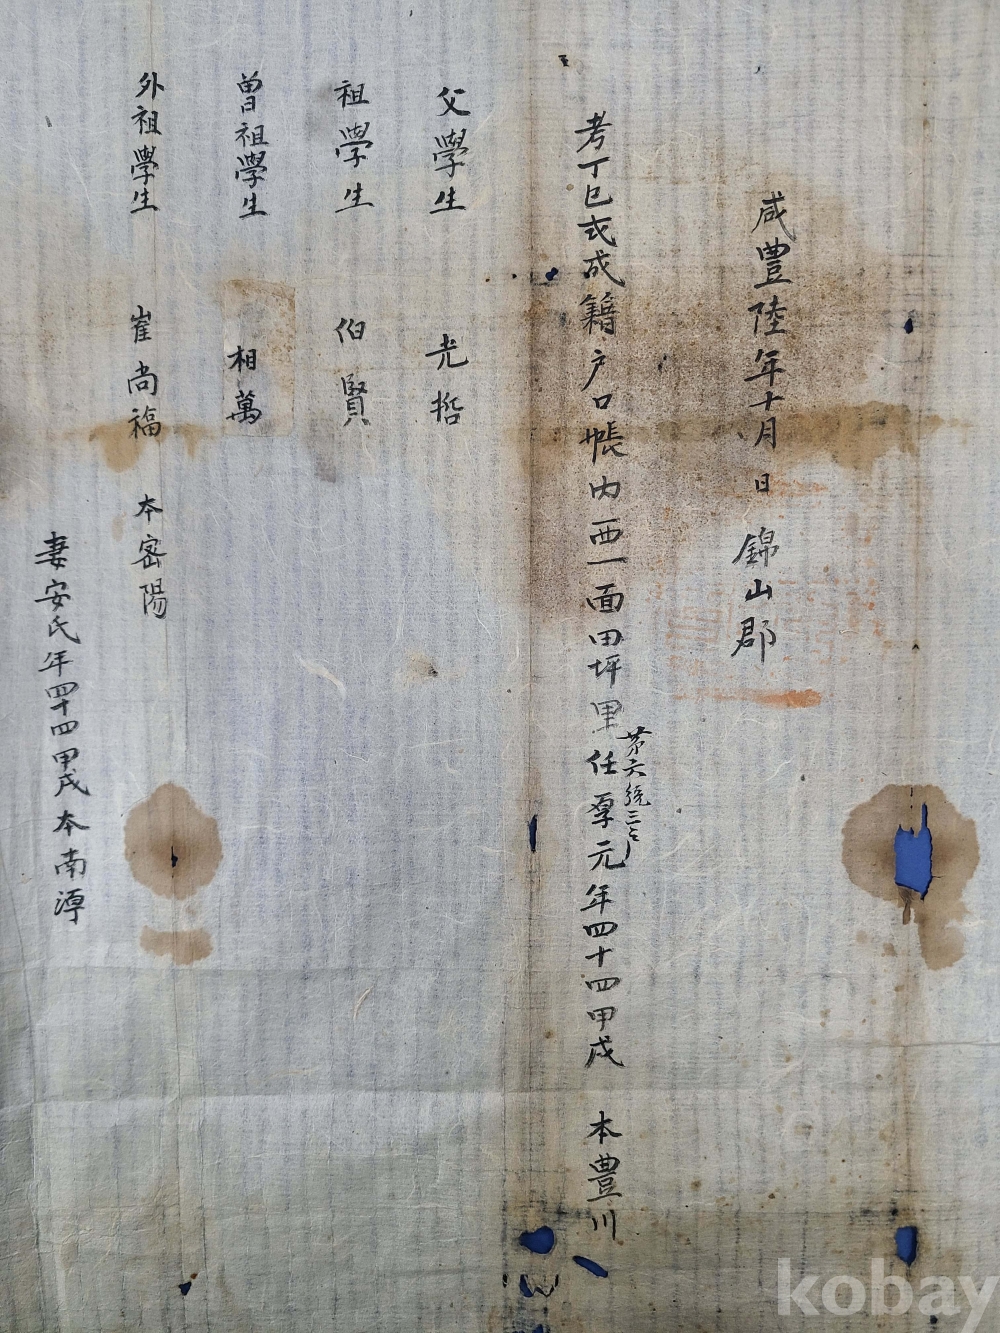 咸豐陸年十月 日 錦山郡
考丁巳式成籍户口帳内西一面田坪里任厚元年四十四甲戌 本豊川
第六統三戶
父學生 光哲
祖學生 伯賢
曽祖學生 相萬
外祖學生 崔尚福 本密陽
妻安氏年四十四甲戌本南
kobay